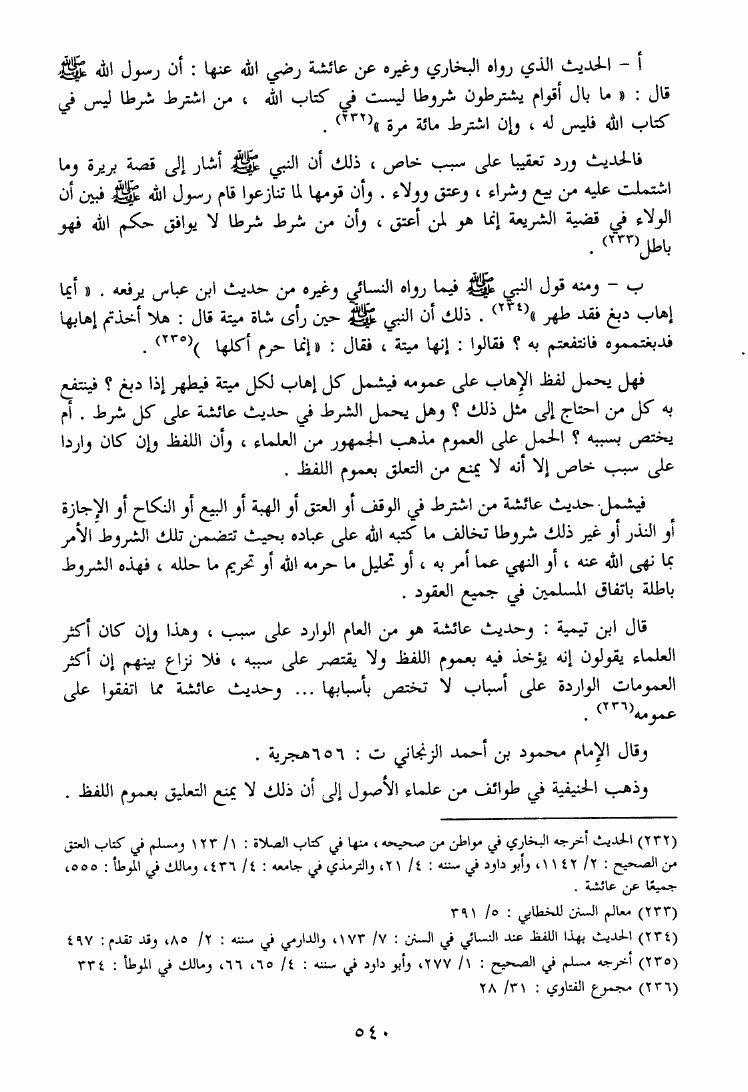 أ - الحديث الذي رواه البخاري وغيره عن عائشة رضي الله عنها : أن رسول الله ﷺ
قال : « ما بال أقوام يشترطون شروطا ليست في كتاب الله ، من اشترط شرطا ليس في
كتاب الله فليس له ، وإن اشترط مائة مرة »(٢٣٢) .
فالحديث ورد تعقيبا على سبب خاص ، ذلك أن النبي ﷺ أشار إلى قصة بريرة وما
اشتملت عليه من بيع وشراء ، وعتق وولاء . وأن قومها لما تنازعوا قام رسول الله ﷺ فبين أن
الولاء في قضية الشريعة إنما هو لمن أعتق ، وأن من شرط شرطا لا يوافق حكم الله فهو
باطل(٢٣٣) .
ب - ومنه قول النبي ﷺ فيما رواه النسائي وغيره من حديث ابن عباس يرفعه . « أيما
إهاب دبغ فقد طهر »(٢٣٤) . ذلك أن النبي ﷺ حين رأى شاة ميتة قال : هلا أخذتم إهابها
فدبغتمموه فانتفعتم به ؟ فقالوا : إنها ميتة ، فقال : « إنما حرم أكلها )(٢٣٥) .
فهل يحمل لفظ الإهاب على عمومه فيشمل كل إهاب لكل ميتة فيطهر إذا دبغ ؟ فينتفع
به كل من احتاج إلى مثل ذلك ؟ وهل يحمل الشرط في حديث عائشة على كل شرط . أم
يختص بسببه ؟ الحمل على العموم مذهب الجمهور من العلماء ، وأن اللفظ وإن كان واردا
على سبب خاص إلا أنه لا يمنع من التعلق بعموم اللفظ .
فيشمل حديث عائشة من اشترط في الوقف أو العتق أو الهبة أو البيع أو النكاح أو الإجازة
أو النذر أو غير ذلك شروطا تخالف ما كتبه الله على عباده بحيث تتضمن تلك الشروط الأمر
بما نهى الله عنه ، أو النهي عما أمر به ، أو تحليل ما حرمه الله أو تحريم ما حلله ، فهذه الشروط
باطلة باتفاق المسلمين في جميع العقود .
قال ابن تيمية : وحديث عائشة هو من العام الوارد على سبب ، وهذا وإن كان أكثر
العلماء يقولون إنه يؤخذ فيه بعموم اللفظ ولا يقتصر على سببه ، فلا نزاع بينهم إن أكثر
العمومات الواردة على أسباب لا تختص بأسبابها ... وحديث عائشة مما اتفقوا على
عمومه(٢٣٦) .
وقال الإمام محمود بن أحمد الزنجاني ت : ٦٥٦هجرية .
وذهب الحنيفية في طوائف من علماء الأصول إلى أن ذلك لا يمنع التعليق بعموم اللفظ .
(٢٣٢) الحديث أخرجه البخاري في مواطن من صحيحه، منها في كتاب الصلاة : ١/ ١٢٣ ومسلم في كتاب العتق
من الصحيح : ٢/ ١١٤٢، وأبو داود في سننه : ٤/ ٢١، والترمذي في جامعه : ٤/ ٤٣٦، ومالك في الموطأ : ٥٥٥،
جميعًا عن عائشة .
(٢٣٣) معالم السنن للخطابي : ٥/ ٣٩١
(٢٣٤) الحديث بهذا اللفظ عند النسائي في السنن : ٧/ ١٧٣، والدارمي في سننه : ٢/ ٨٥، وقد تقدم : ٤٩٧
(٢٣٥) أخرجه مسلم في الصحيح : ١/ ٢٧٧، وأبو داود في سننه : ٤/ ٦٥، ٦٦، ومالك في الموطأ : ٣٣٤
(٢٣٦) مجموع الفتاوي : ٣١/ ٢٨
٥٤٠